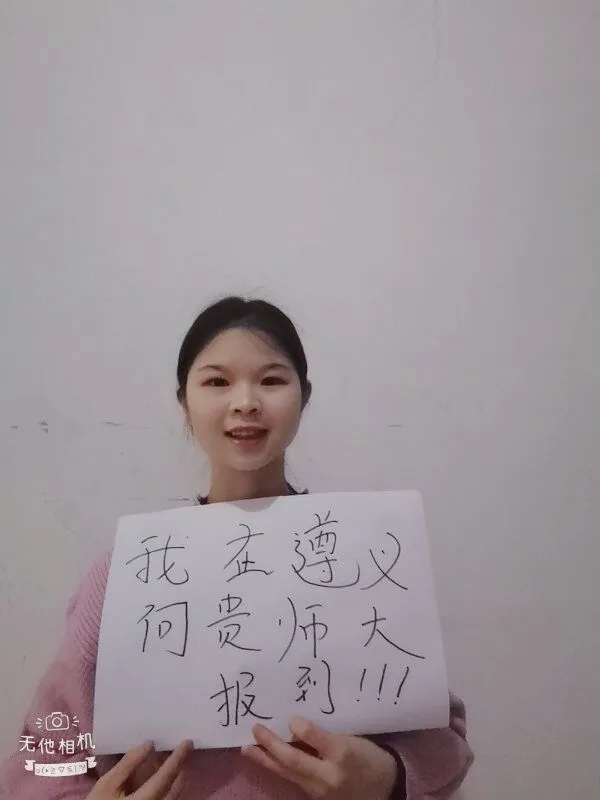 我在遵义
何贵师大
报到!!!
无他相机